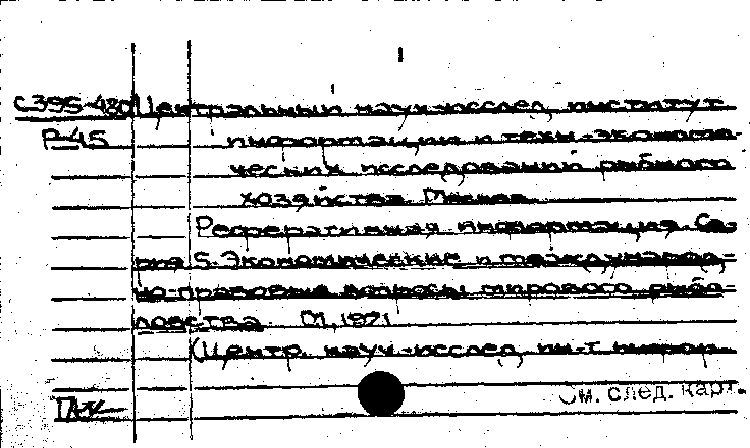 С395-480 Центральный науч.-исслед. институт
Р-45 информации и техн.-экономи-
ческих исследований рыбного
хозяйства. Москва.
Реферативная информация. Се-
рия 5. Экономические и международ-
но-правовые вопросы мирового рыбо-
ловства. М., 1971
(Центр. науч.-исслед. ин-т информ.
См. след. карт.